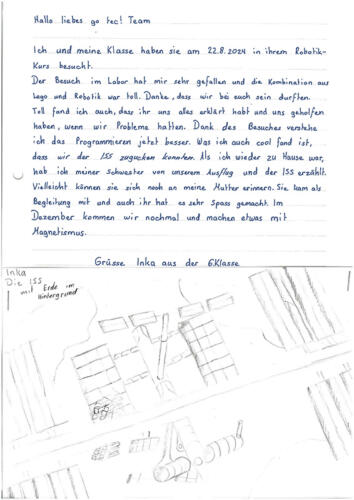 Hallo liebes go tec! Team
Ich und meine Klasse haben sie am 22.8.2024 in ihrem Robotik-
Kurs besucht.
Der Besuch im Labor hat mir sehr gefallen und die Kombination aus
Lego und Robotik war toll. Danke, dass wir bei euch sein durften.
Toll fand ich auch, dass ihr uns alles erklärt habt und uns geholfen
haben, wenn wir Probleme hatten. Dank des Besuches verstehe
ich das Programmieren jetzt besser. Was ich auch cool fand ist,
dass wir der ISS zugucken konnten. Als ich wieder zu Hause war,
hab ich meiner Schwester von unserem Ausflug und der ISS erzählt.
Vielleicht können sie sich noch an meine Mutter erinnern. Sie kam als
Begleitung mit und auch ihr hat es sehr Spass gemacht. Im
Dezember kommen wir nochmal und machen etwas mit
Magnetismus.
Grüsse Inka aus der 6.Klasse
Inka
Die ISS
mit Erde im
Hintergrund